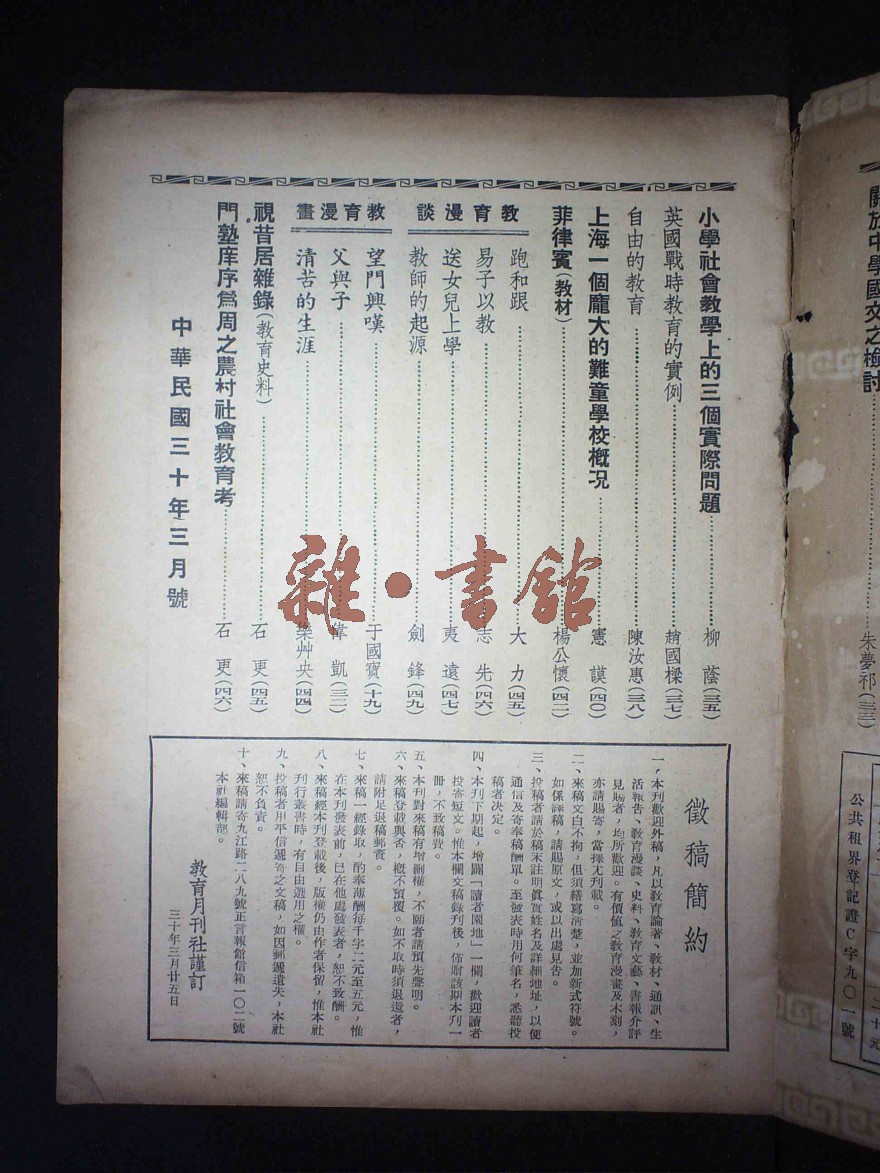 關於中學國文之檢討……朱夢祁(三三)
小學社會教學上的三個實際問題……柳蔭(三五)
英國戰時教育的實例……趙國樑(三七)
自由的教育……陳汝惠(三八)
上海一個龐大的難童學校概况……憲謨(四〇)
菲律賓(教材)……楊公懷(四二)
教育漫談
跑和跟……大力(四五)
易子以教……志先(四六)
送女兒上學……夷遠(四七)
教師的起源……劍鋒(四九)
教育漫畫
望門興嘆……于國寶(十九)
父與子……偉凱(三二)
清苦的生涯……樂艸央(四四)
視昔居雜錄(教育史料)……石更(四五)
門塾庠序為周之農村社會教育考……石更(四六)
中華民國三十年三月號
雜·書館
徵稿簡約
一、本刊歡迎外稿，凡以教育論著、教材、通訊、生
活報告、教育漫談、史料、教育文藝、書報介評
見賜者，均所歡迎。有價值之教育漫畫及木刻，
亦請賜寄，當擇尤刊載。
二、來稿文白不拘，但須繕寫清楚，並加新式符號。
如係譯稿，請賜原文，或以出處見告。
三、投稿者請於稿末註明眞實姓名及詳細地址，以便
通信及寄奉稿酬單。至發表時用何筆名，悉聽投
稿者決定。
四、本刊下期起，增闢「讀者園地」一欄，歡迎讀者
投寄短文。惟本欄文稿錄刊後，僅酬該期本刊一
冊，不致稿費。
五、本刊對來稿有增刪權，不願者請預先聲明。
六、來稿登載與否，槪不預覆。如不取時須退還者，
請附足退稿郵資。
七、來稿一經錄取，酌奉薄酬每千字二元至五元，惟
在本刊發表前，已在他處發表者，恕不致酬。
八、來稿經本刊登載後，版權仍由作者保留，惟本社
刊行叢書時，有自由選用之權。
九、投稿者用平信遞寄之文稿，如因郵遞遺失，本社
恕不負責。
十、來稿請寄九江路二八九號正言報館信箱一〇二號
本社編輯部。
教育月刊社謹訂
三十年三月廿五日
公共租界登記證C字九〇一號